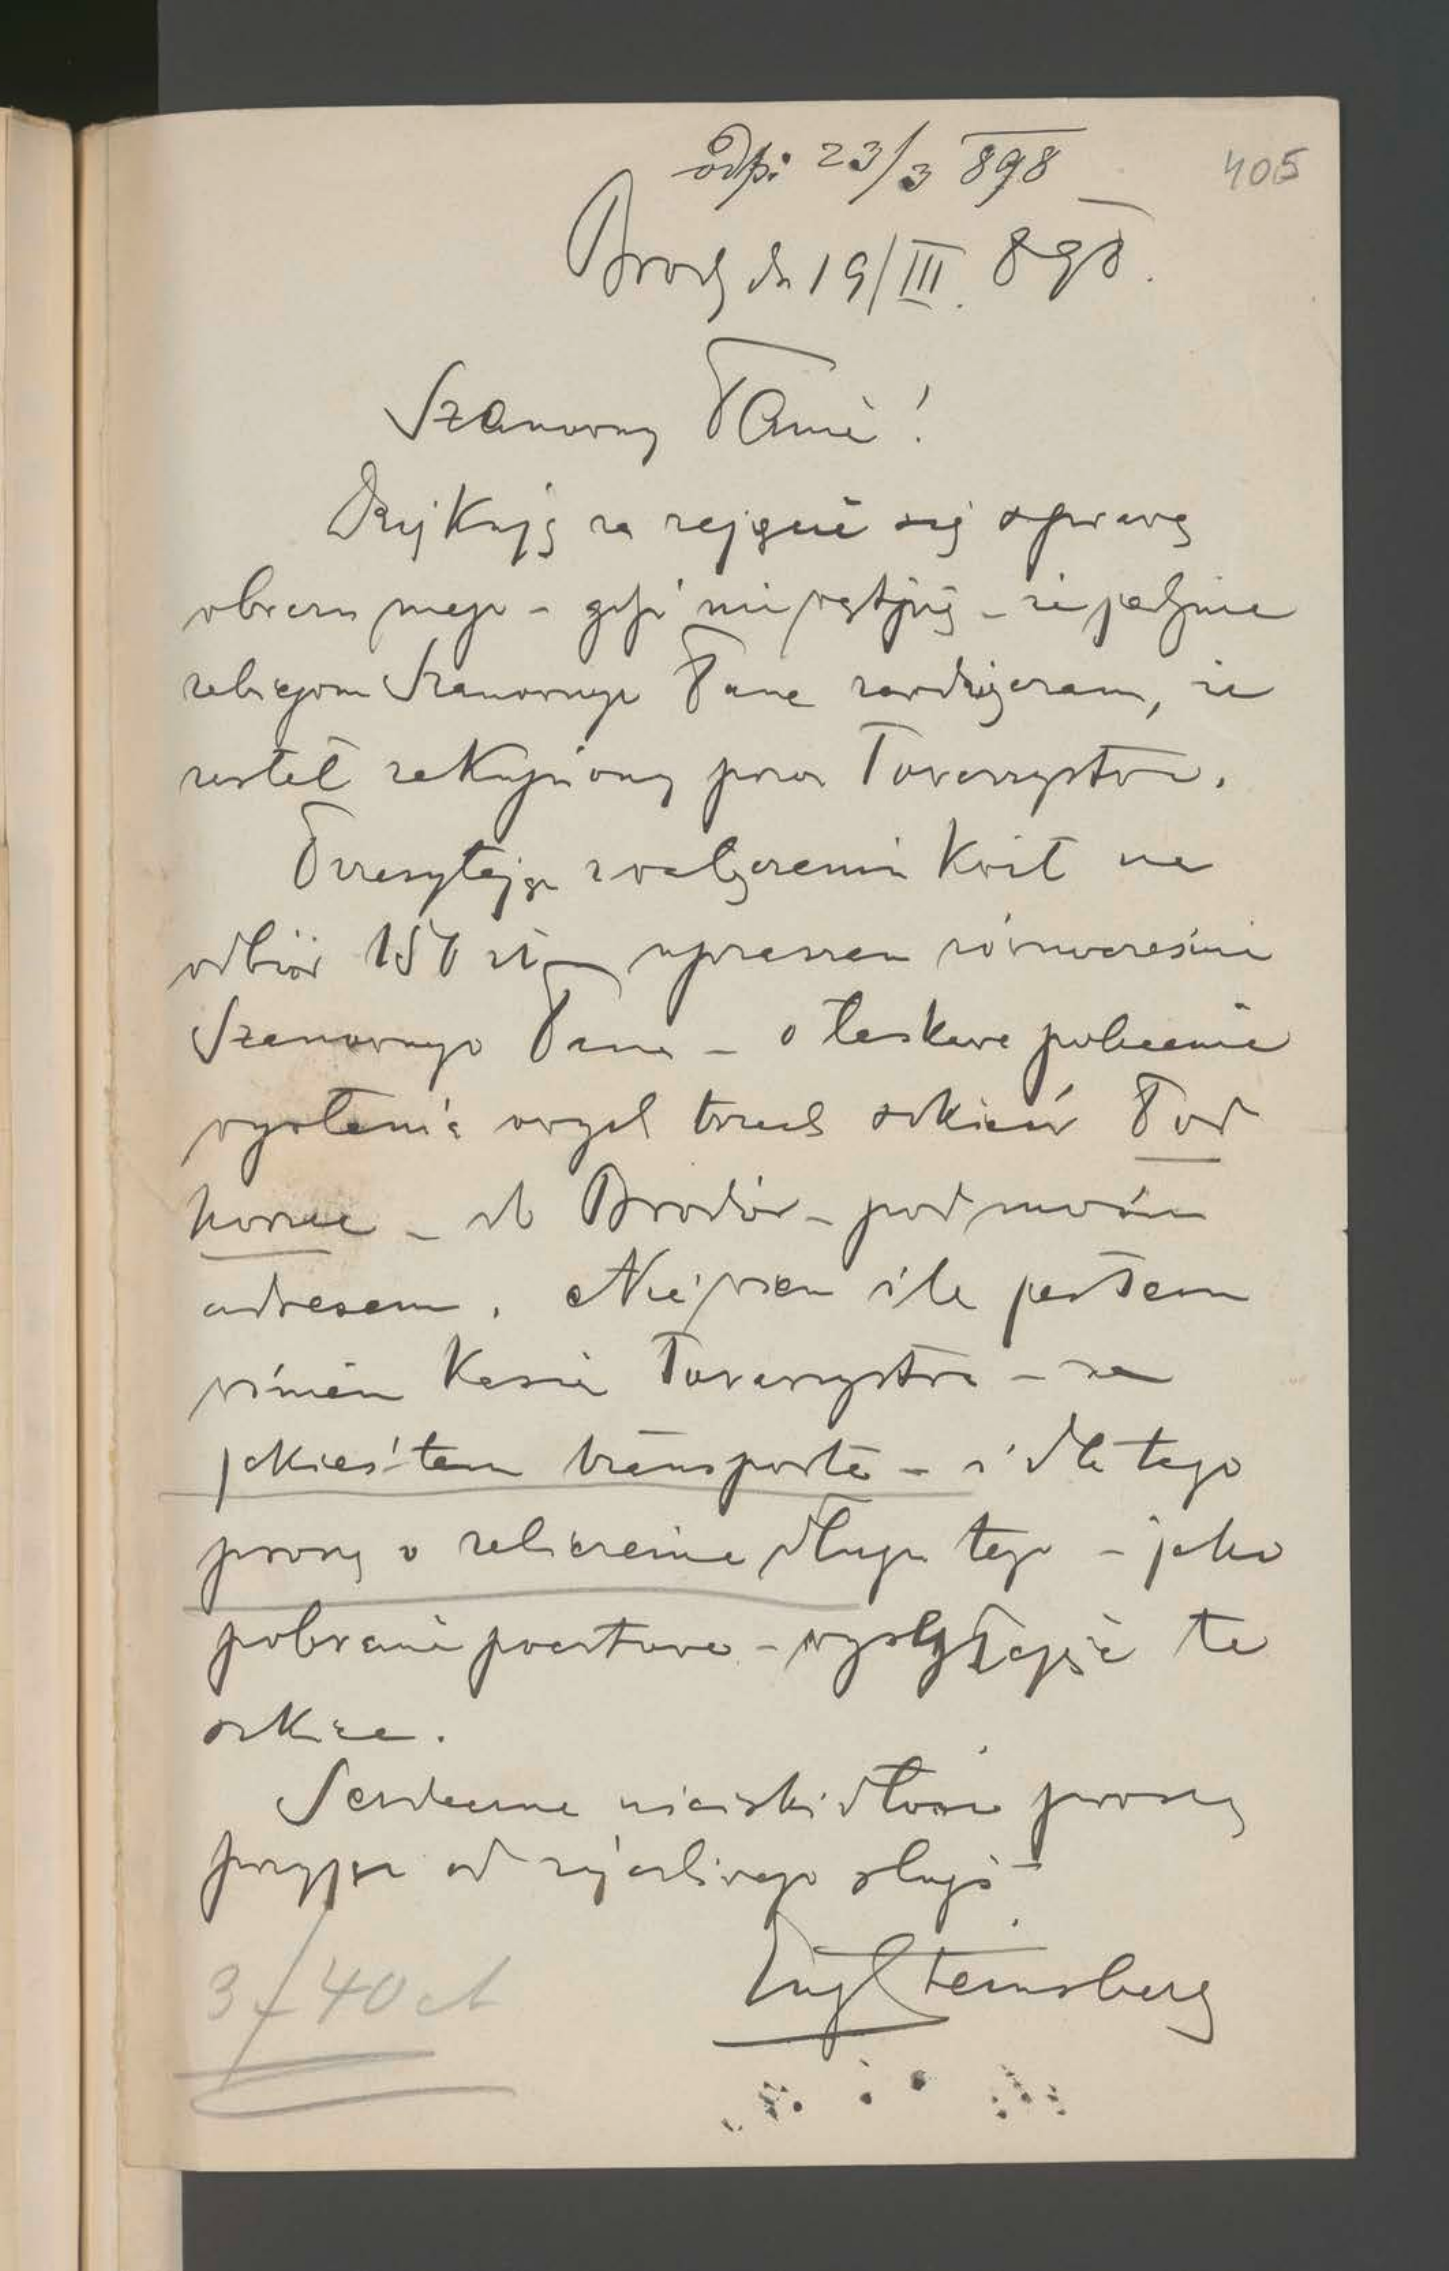 odp: 23/3 898
405
Brody dn 19/III 898.
Szanowny Panie!
Dziękuję za zajęcie się sprawą
obrazu mego – gdyż nie wątpię – że jedynie
zabiegom Szanownego Pana zawdzięczam, że
został zakupiony przez Towarzystwo.
Przesyłając w załączeniu kwit na
odbiór 150 zł – upraszam równocześnie
Szanownego Pana – o łaskawe polecenie
wysłania owych trzech szkiców Pod
horce – do Brodów – pod moim
adresem. Nie wiem ile jestem
winien Kasie Towarzystwa – za
jakieś tam transporta – i dla tego
proszę o zaliczenie długu tego – jako
pobranie pocztowe – wysyłając te
szkice.
Serdeczne uściski dłoni proszę
przyjąć od życzliwego sługi
Eug Steinsberg
3 f 40 ct